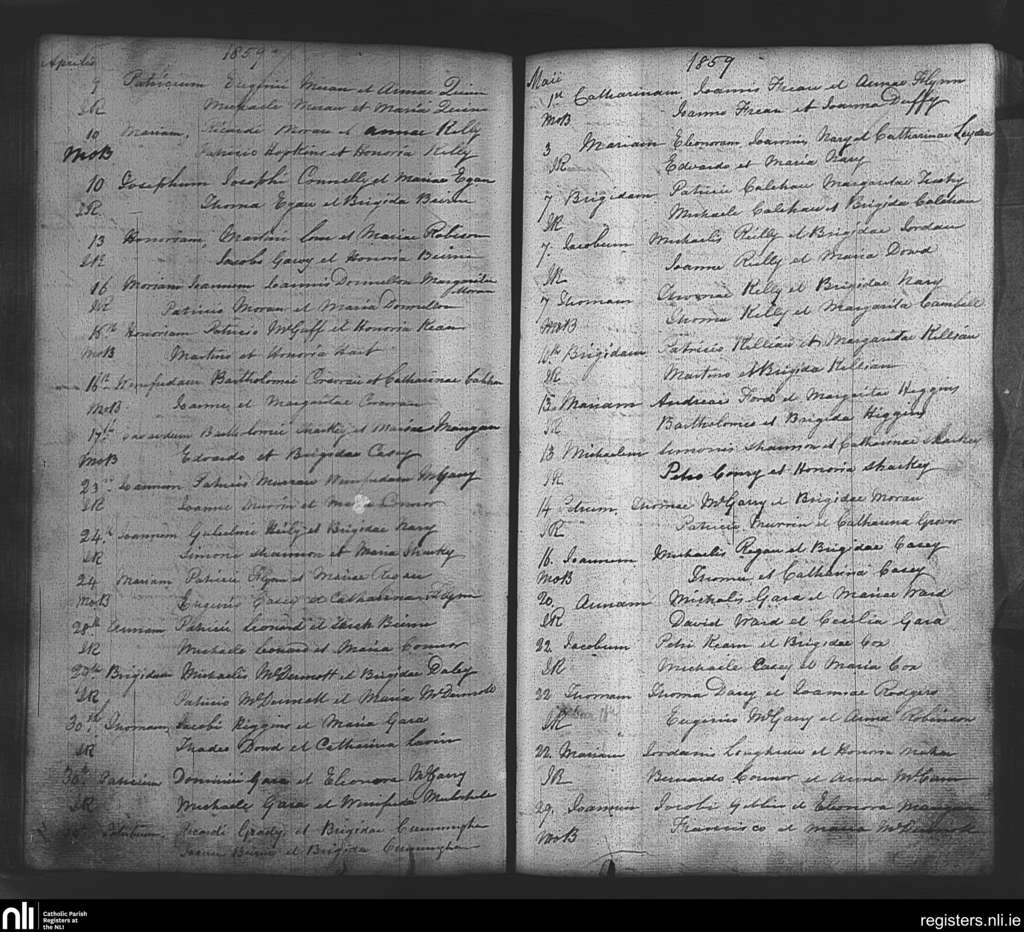 Aprilis 1859
9 Patricium Eugenii Moran et Annae Quinn
JR Michaele Moran et Maria Quinn
10 Mariam, Ricardi Moran et Annae Kelly
MOB Patricio Hopkins et Honoria Kelly
10 Josephum Josephi Connelly et Mariae Egan
JR Thoma Egan et Brigida Beirne
13 Honoriam, Martini et Mariae Robison
JR Jacobo Garvy et Honoria Beirne
16 Joannem Joannis Donnellon Margaritae Moran
JR Patricio Moran et Maria Donnellon
16th Honoriam Patricio McGuff et Honoria Kean
MOB Martino et Honoria Hart
16th Winifredam Bartholomei et Catharinae
MOB Joanne et Margaritae
17th Bartholomei Sharkey et Mariae Mangan
MOB Edvardo et Brigidae Casey
23 Joannem Patricii Murran Winifredam McGarry
JR Joanne et Connor
24th Joannem Gulielmi Heily et Brigidae Nary
JR Simone Shannon et Maria Sharkey
24 Mariam Patricii Flynn et Mariae Regan
MOB Eugenio Casey et Catharinae Flynn
28th Annam Patricii Leonard et Beirne
JR Michaele Leonard et Maria Connor
29th Brigidam Michaelis McDermott et Brigidae Daly
JR Patricio McDermott et Maria McDermott
30th Thomam, Jacobi Higgins et Maria Gara
JR Thadeo Dowd et Catharina Lavin
30th Patricium Dominici Gara et Eleonora McGarry
JR Michaele Gara et Winifreda
Ricardi Grady et Brigidae Cunningham
Beirne et Brigida Cunningham
Maii 1859
1st Catharinam Joannis Frean et Annae Flynn
MOB Joanne Frean et Joanna Duffy
3 Mariam Eleonoram Joannis Nary et Catharinae Leydon
JR Edvardo et Maria Nary
7 Brigidam Patricii Calehan Margaritae
JR Michaele Calehan et Brigida Calehan
7. Jacobum Michaelis Reilly et Brigidae Jordan
JR Joanne Reilly et Maria Dowd
7 Thomam Kelly et Brigidae Nary
MOB Thoma Kelly et Margarita Cambell
10th Brigidam Patricii Killian et Margaritae Killian
JR Martino et Brigida Killian
13 Mariam Andreae Ford et Margarita Higgins
JR Bartholomeo et Brigida Higgins
13 Michaelem Simonis Shannon et Catharinae Sharkey
JR Petro Conry et Honoria Sharkey
14 Petrum, Thomae McGarry et Brigidae Moran
JR Patricio et Catharina
16. Joannem Michaelis Regan et Brigidae Casey
MOB Thoma et Catharina Casey
20. Annam Michaelis Gara et Mariae Ward
JR David Ward et Cecilia Gara
22. Jacobum Petri Kearn et Brigidae Cox
JR Michaele Casey et Maria Cox
22 Thomam Thoma Dacy et Joannae Rodgers
JR Eugenio McGarry et Anna Robinson
22. Mariam Jordani et Honora
JR Bernardo Connor et Anna McCann
29. Joannem Jacobi et Eleonora Mangan
MOB Francisco et Maria McDermott
nli Catholic Parish Registers at the NLI
registers.nli.ie